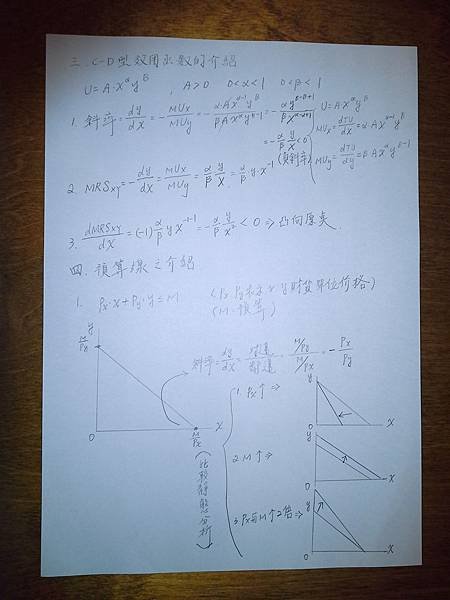 三.C-D型效用函数的介紹
U=A·X^α y^β , A>0 0<α<1 0<β<1
1. 斜率=dy/dx=-MUx/MUy=-α·A X^(α-1) y^β/βA X^α y^(β-1)=-α y^(β-β+1)/β X^(α-α+1)
=-α/β y/x<0
(負斜率)
U=A X^α y^β
MUx=dTU/dx=α·A X^(α-1) y^β
MUy=dTU/dy=β A X^α y^(β-1)
2. MRSxy=-dy/dx=MUx/MUy=α/β y/x=α/β y·x^-1
3. dMRSxy/dx=(-1)α/β y x^(-1-1)=-α/β y/x²<0⇒凸向原点
四.預算線之介紹
1. Px·X+Py·y≤M (Px Py表示x y財貨單位价格)
(M:預算)
y
M/Py
0
M/Px
X
斜率=dy/dx=对邊/鄰邊=M/Py/M/Px=-Px/Py
(比較靜態分析)
1. Px↑⇒
y
0
X
2. M↑⇒
y
0
X
3. Px与M↑2倍⇒
y
0
X